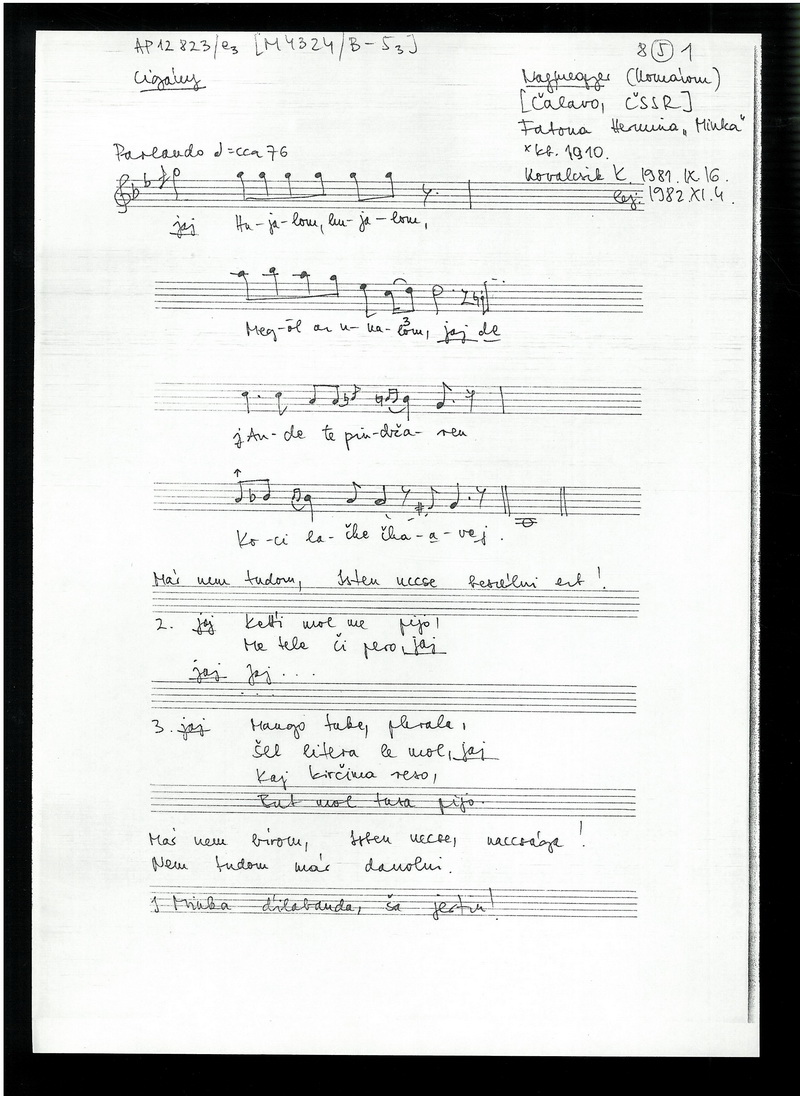 AP 12 823/e3 [M 4324/B-53]
8 5 1
Cigány
Nagymegyer (Komárom)
[Čalavo, ČSSR]
Fatona Hermina „Minka"
* kb. 1910.
Kovalcsik K. 1981. IX. 16.
lej. 1982. XI. 4.
Parlando = cca 76
jaj Hu-ja-lom, hu-ja-lom,
Meg-öl az u-na-lom, jaj de
3
j An-de te pin-dža-ren
Ko-ci la-čhe čhá-a-vej.
Már nem tudom, Isten uccse beszélni ezt!
2. jaj Ketťi mol me pijo,
Me tele či pero, jaj
jaj jaj...
3. jaj Mango tuke, phrala,
Šel litera le mol, jaj
Kaj kirčima reso,
But mol tusa pijo.
Már nem bírom, Isten uccse, naccsága!
Nem tudom már danolni.
j Minka ďilabanda, ša jertin!